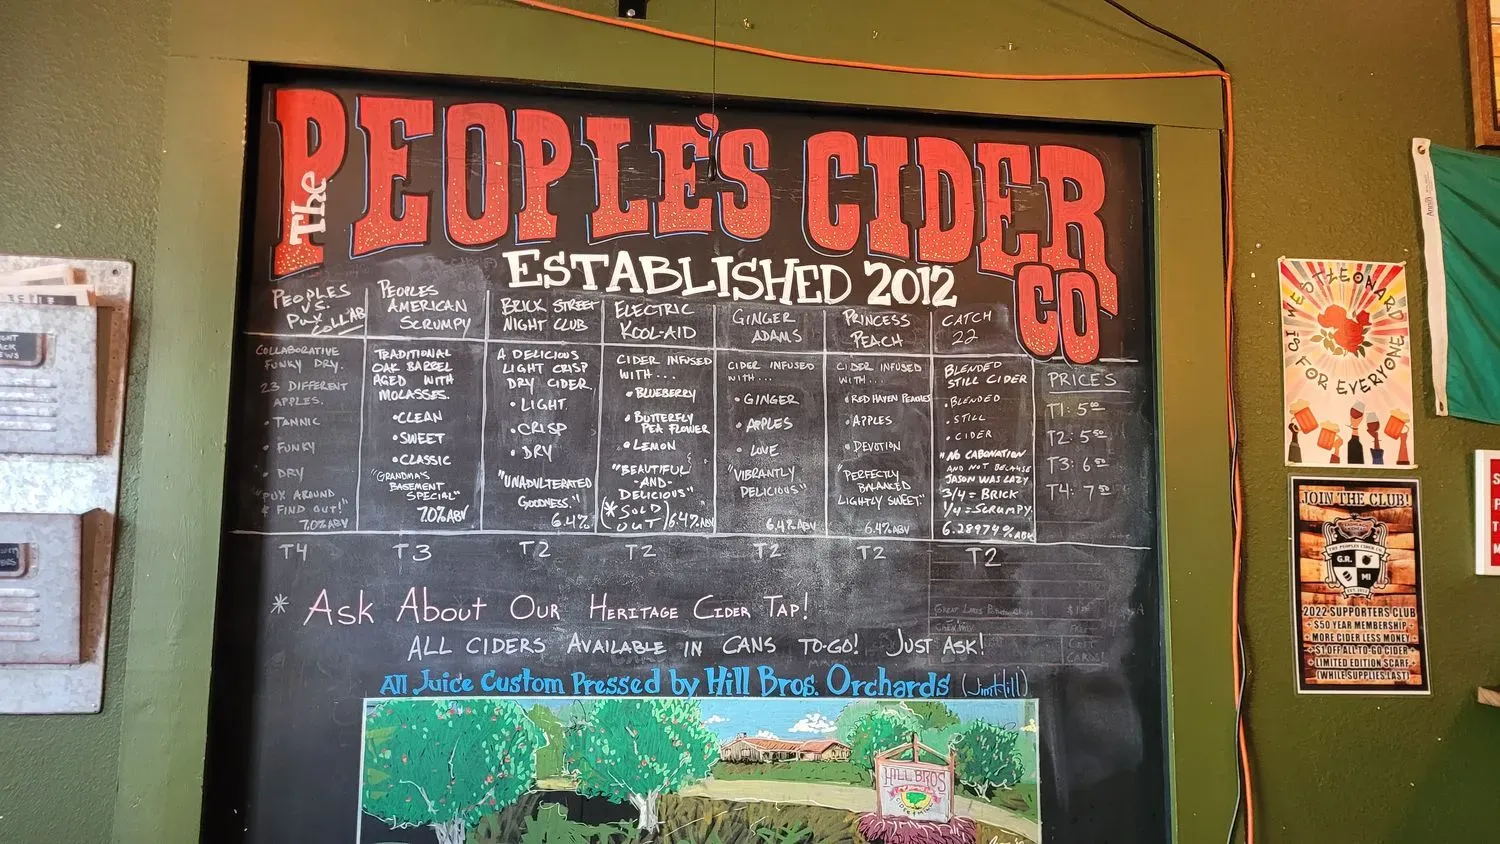 The PEOPLE'S CIDER CO
ESTABLISHED 2012
PEOPLES
VS.
PUX COLLAB
COLLABORATIVE
FUNKY DRY.
23 DIFFERENT
APPLES.
• TANNIC
• FUNKY
• DRY
"PUX AROUND
& FIND OUT!"
7.0% ABV
T4
PEOPLES
AMERICAN
SCRUMPY
TRADITIONAL
OAK BARREL
AGED WITH
MOLASSES.
• CLEAN
• SWEET
• CLASSIC
"GRANDMA'S
BASEMENT
SPECIAL"
7.0% ABV
T3
BRICK STREET
NIGHT CLUB
A DELICIOUS
LIGHT CRISP
DRY CIDER.
• LIGHT
• CRISP
• DRY
"UNADULTERATED
GOODNESS."
6.4%
T2
ELECTRIC
KOOL-AID
CIDER INFUSED
WITH...
• BLUEBERRY
• BUTTERFLY
PEA FLOWER
• LEMON
"BEAUTIFUL
-AND-
DELICIOUS"
(* SOLD
OUT) 6.4% ABV
T2
GINGER
ADAMS
CIDER INFUSED
WITH...
• GINGER
• APPLES
• LOVE
"VIBRANTLY
DELICIOUS"
6.4% ABV
T2
PRINCESS
PEACH
CIDER INFUSED
WITH...
• RED HAVEN PEACHES
• APPLES
• DEVOTION
"PERFECTLY
BALANCED
LIGHTLY SWEET."
6.4% ABV
T2
CATCH
22
BLENDED
STILL CIDER
• BLENDED
• STILL
• CIDER
"NO CABONATION
AND NOT BECAUSE
JASON WAS LAZY
3/4 = BRICK
1/4 = SCRUMPY.
6.28974% ABV
T2
PRICES
T1: 5.00
T2: 5.50
T3: 6.00
T4: 7.50
* ASK ABOUT OUR HERITAGE CIDER TAP!
ALL CIDERS AVAILABLE IN CANS TO-GO! JUST ASK!
All Juice Custom Pressed by Hill Bros. Orchards (Jim Hill)
HILL BROS
WESTLEONARD
FOR EVERYONE
JOIN THE CLUB!
THE PEOPLES CIDER CO
G.R.
MI
2022 SUPPORTERS CLUB
• $50 YEAR MEMBERSHIP •
• MORE CIDER LESS MONEY •
• $1 OFF ALL TO-GO CIDER •
• LIMITED EDITION SCARF •
(WHILE SUPPLIES LAST)